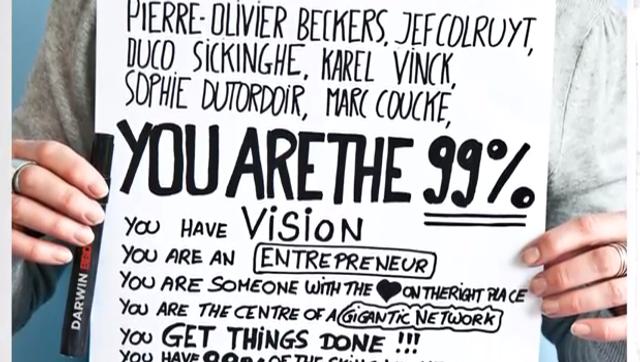 PIERRE-OLIVIER BECKERS, JEF COLRUYT,
DUCO SICKINGHE, KAREL VINCK,
SOPHIE DUTORDOIR, MARC COUCKE,
YOU ARE THE 99%.
YOU HAVE VISION
YOU ARE AN ENTREPRENEUR
YOU ARE SOMEONE WITH THE ♥ ON THE RIGHT PLACE
YOU ARE THE CENTRE OF A GIGANTIC NETWORK
YOU GET THINGS DONE !!!
YOU HAVE 99% OF THE
DARWIN